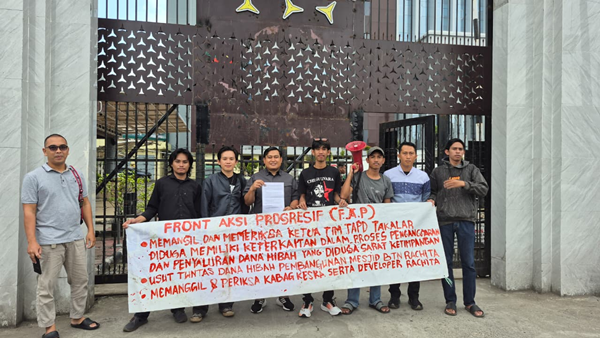 FRONT AKSI PROGRESIF (F.A.P)
• MEMANGIL DAN MEMERIKSA KETUA TIM TAPD TAKALAR
DIDUGA MEMILIKI KETERKAITAN DALAM PROSES PERENCANAAN
DAN PENYALURAN DANA HIBAH YANG DIDUGA SARAT KETIMPANGAN
• USUT TUNTAS DANA HIBAH PEMBANGUNAN MESJID BTN RACHITA
• MEMANGGIL & PERIKSA KABAG KESRA SERTA DEVELOPER RACHITA